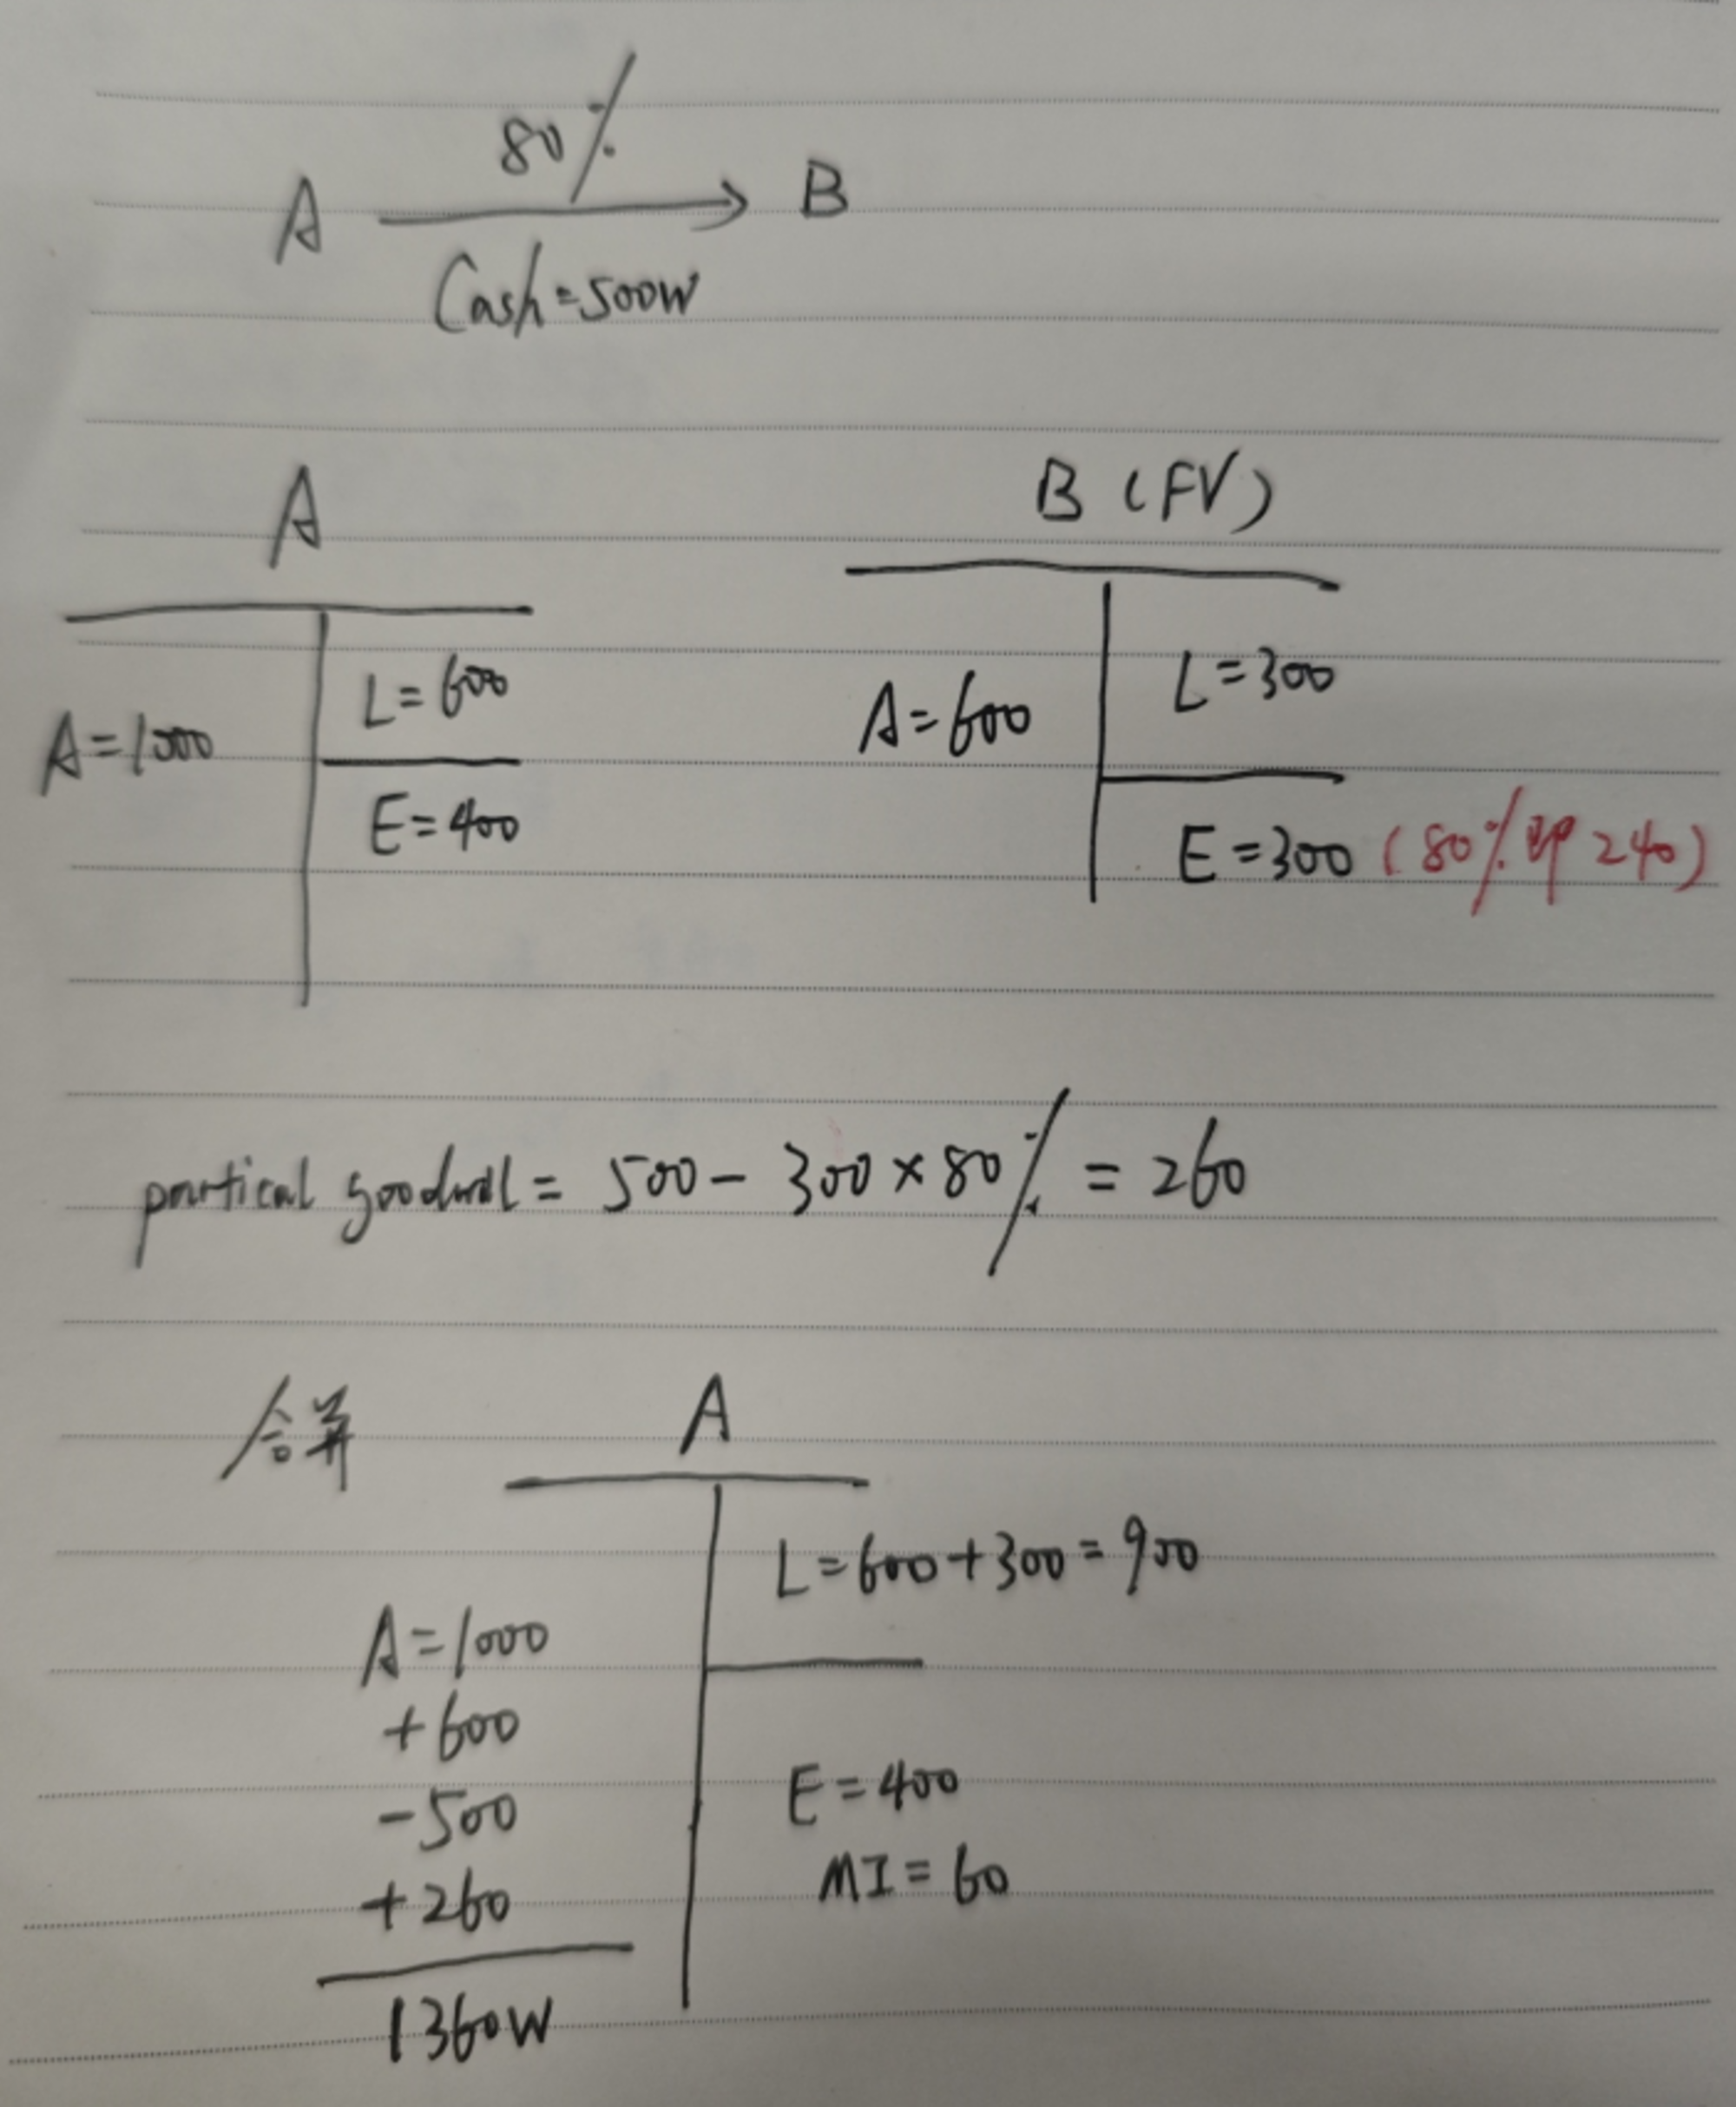 80%
A → B
Cash=500W
A
B (FV)
L=600
A=1000
E=400
L=300
A=600
E=300 (80%即240)
partical goodwill = 500 - 300 × 80% = 260
合并
A
L=600+300=900
A=1000
+600
-500
+260
1360W
E=400
MI=60